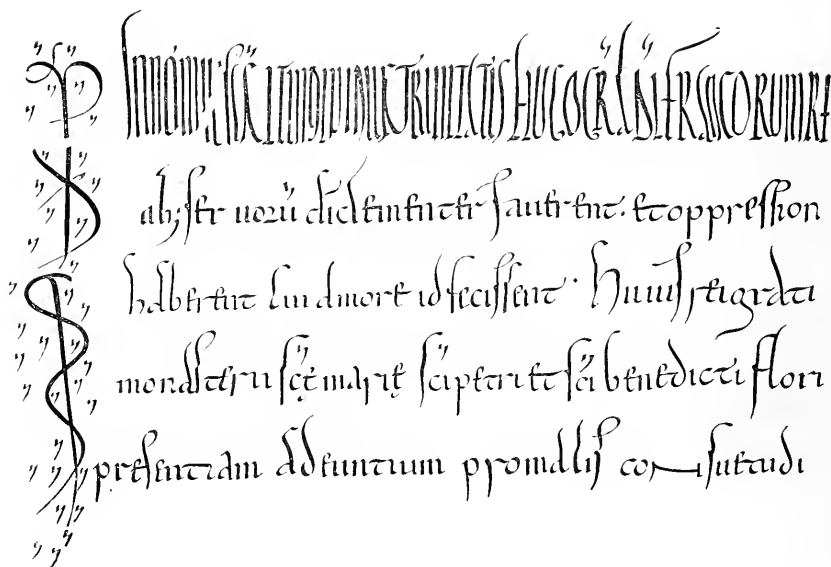 In nomine scę et individue trinitatis hugo grā dī francorum re
ab; seruorū dī clementer fauerent. et oppression
haberent sui amore id fecissent. Huius rei grati
monasterii scę̄ marię scī petri et scī benedicti flori
presentiam adeuntium pro malis consuetudi